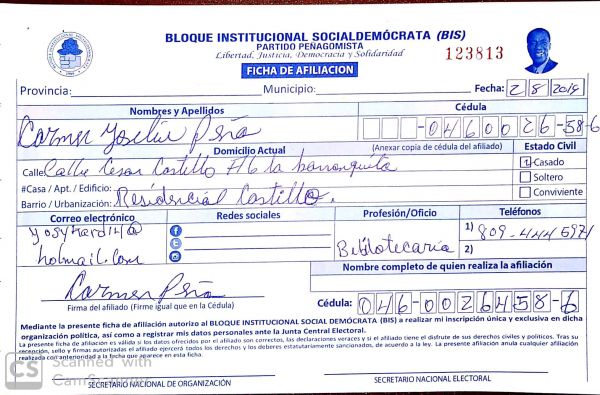 BLOQUE INSTITUCIONAL SOCIALDEMÓCRATA (BIS)
PARTIDO PEÑAGOMISTA
Libertad, Justicia, Democracia y Solidaridad
123813
FICHA DE AFILIACION
Provincia: Municipio: Fecha: 2 8 2019
Nombres y Apellidos Cédula
Carmen Yoselin Peña
Domicilio Actual (Anexar copia de cédula del afiliado) Estado Civil
Calle: Calle Cesar Castillo #16 la barranquita
1 Casado
#Casa / Apt. / Edificio: Soltero
Barrio / Urbanización: Residencial Castillo. Conviviente
Correo electrónico Redes sociales Profesión/Oficio Teléfonos
hotmail.com
Bibliotecaria
1) 809-444 5971
2)
Nombre completo de quien realiza la afiliación
Carmen Peña
Firma del afiliado (Firme igual que en la Cédula) Cédula: 046-0026458-6
Mediante la presente ficha de afiliación autorizo al BLOQUE INSTITUCIONAL SOCIAL DEMÓCRATA (BIS) a realizar mi inscripción única y exclusiva en dicha
organización política, así como a registrar mis datos personales ante la Junta Central Electoral.
La presente ficha de afiliación es válida si los datos ofrecidos por el afiliado son correctos, las declaraciones veraces y si el afiliado tiene el disfrute de sus derechos civiles y políticos. Tras su
recepción, sello y firmas autorizadas el afiliado ejercerá todos los derechos y los deberes estatutariamente sancionados, de acuerdo a la ley. La presente afiliación anula cualquier afiliación
realizada con anterioridad a la fecha que aparece en esta ficha.
CS Scanned with
CamScanner
SECRETARIO NACIONAL DE ORGANIZACIÓN SECRETARIO NACIONAL ELECTORAL